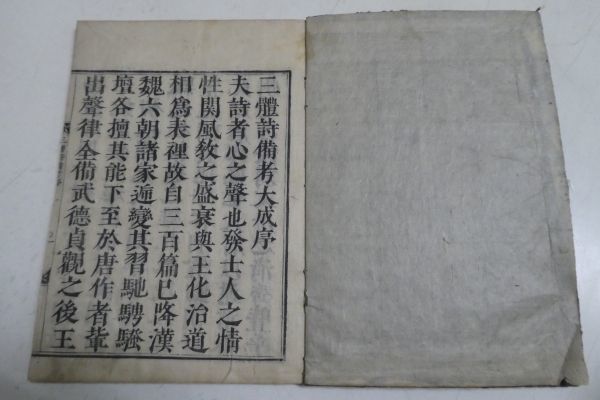 三體詩備考大成序
夫詩者心之聲也發士人之情
性関風敎之盛衰與王化治道
相爲表裡故自三百篇已降漢
魏六朝諸家遞變其習馳騁騷
壇各擅其能下至於唐作者輩
出聲律全備武德貞觀之後王